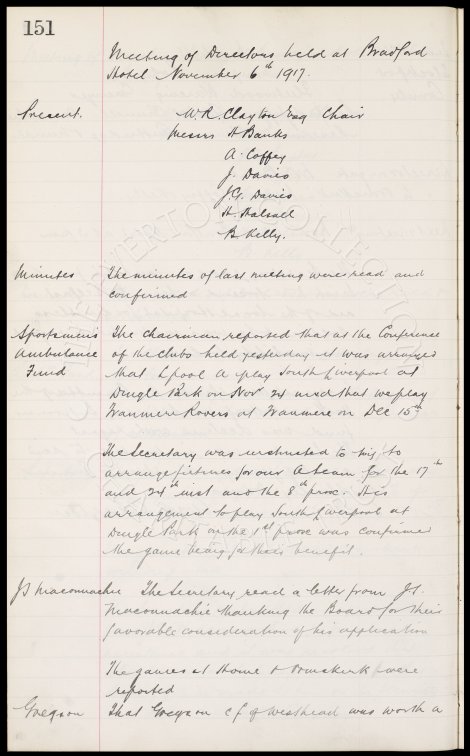 151
Meeting of Directors held at Bradford
Hotel November 6th 1917.
Present. W. R. Clayton Esq Chair
Messrs H Banks
A. Coffey
J. Davies
J. G. Davies
H. Halsall
B Kelly.
Minutes The minutes of last meeting were read and
confirmed
Sportsmens The Chairman reported that at the Conference
Ambulance of the clubs held yesterday it was arranged
Fund that Lpool A play South Liverpool at
Dingle Park on Nov 24 and that we play
Tranmere Rovers at Tranmere on Dec 15th
The Secretary was instructed to try to
arrange fixtures for our A team for the 17th
and 24th inst and the 8th prox. His
arrangement to play South Liverpool at
Dingle Park on the 1st prox was confirmed
the game being for their benefit.
Js Maconnachie The Secretary read a letter from Js.
Maconnachie thanking the Board for their
favorable consideration of his application
The games at Home & Ormskirk were
reported
Gregson That Gregson c f of Westhead was worth a